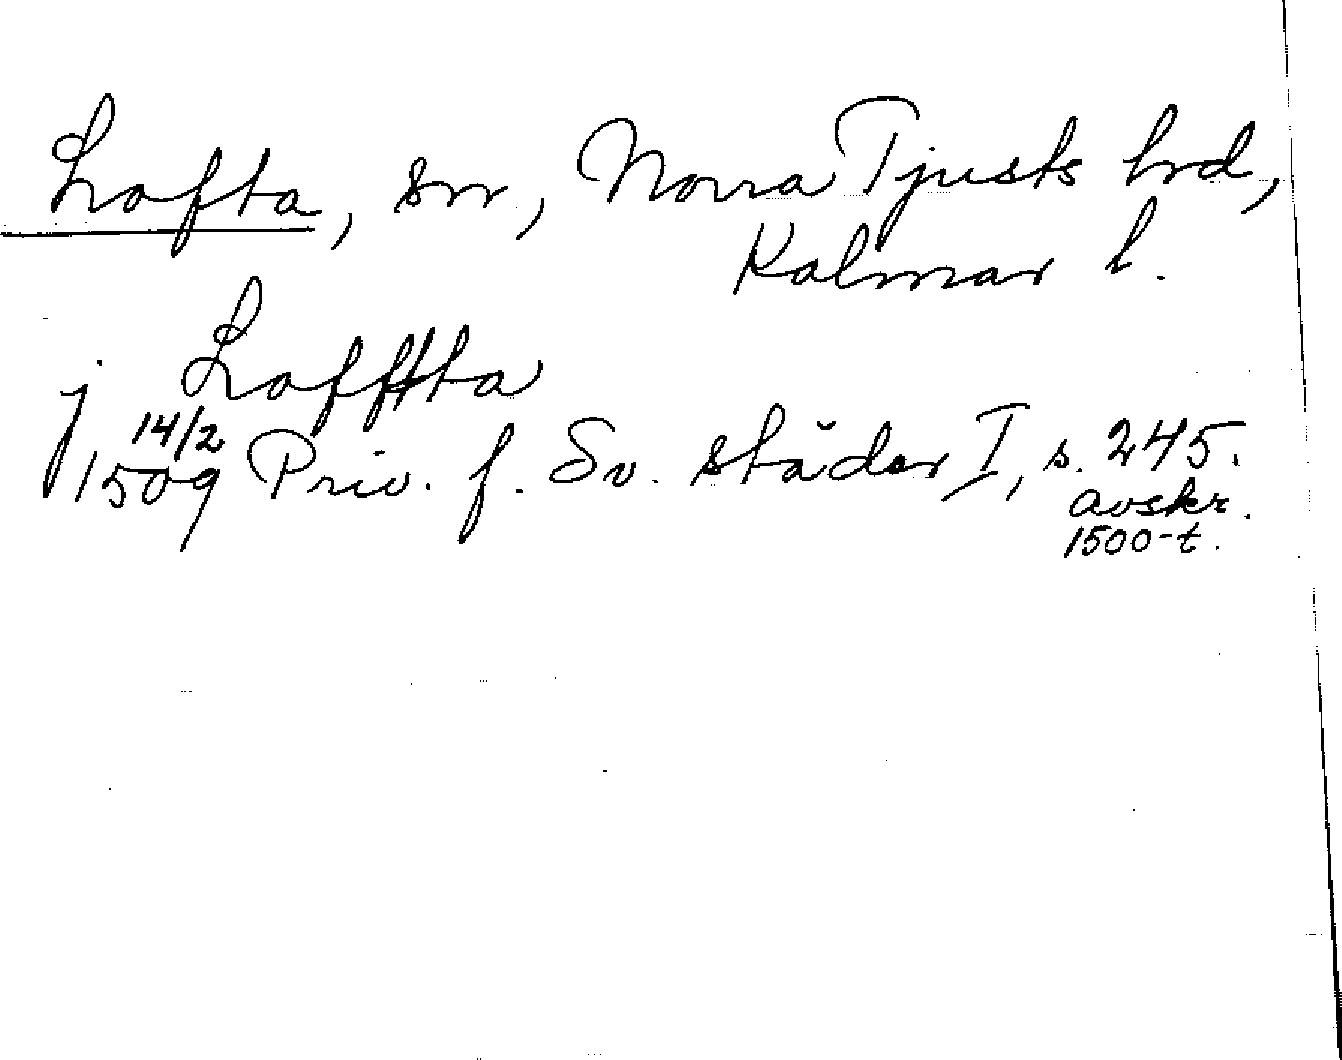 Lofta, sn, Norra Tjusts hrd,
Kalmar l.
j Loffta
14/2
1509 Priv. f. Sv. städer I, s. 245.
avskr.
1500-t.